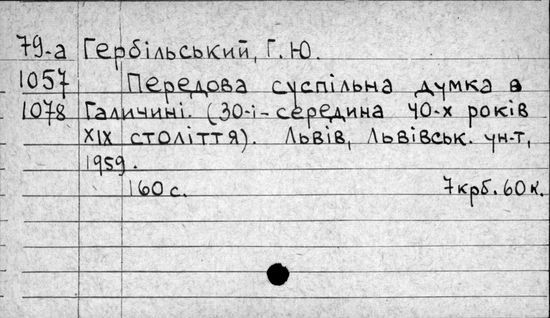 79-а Гербільський, Г.Ю.
1057 Передова суспільна думка в
1078 Галичині. (30-і-середина 40-х років
XIX століття). Львів, Львівськ. ун-т,
1959.
160 с. 7крб. 60к.